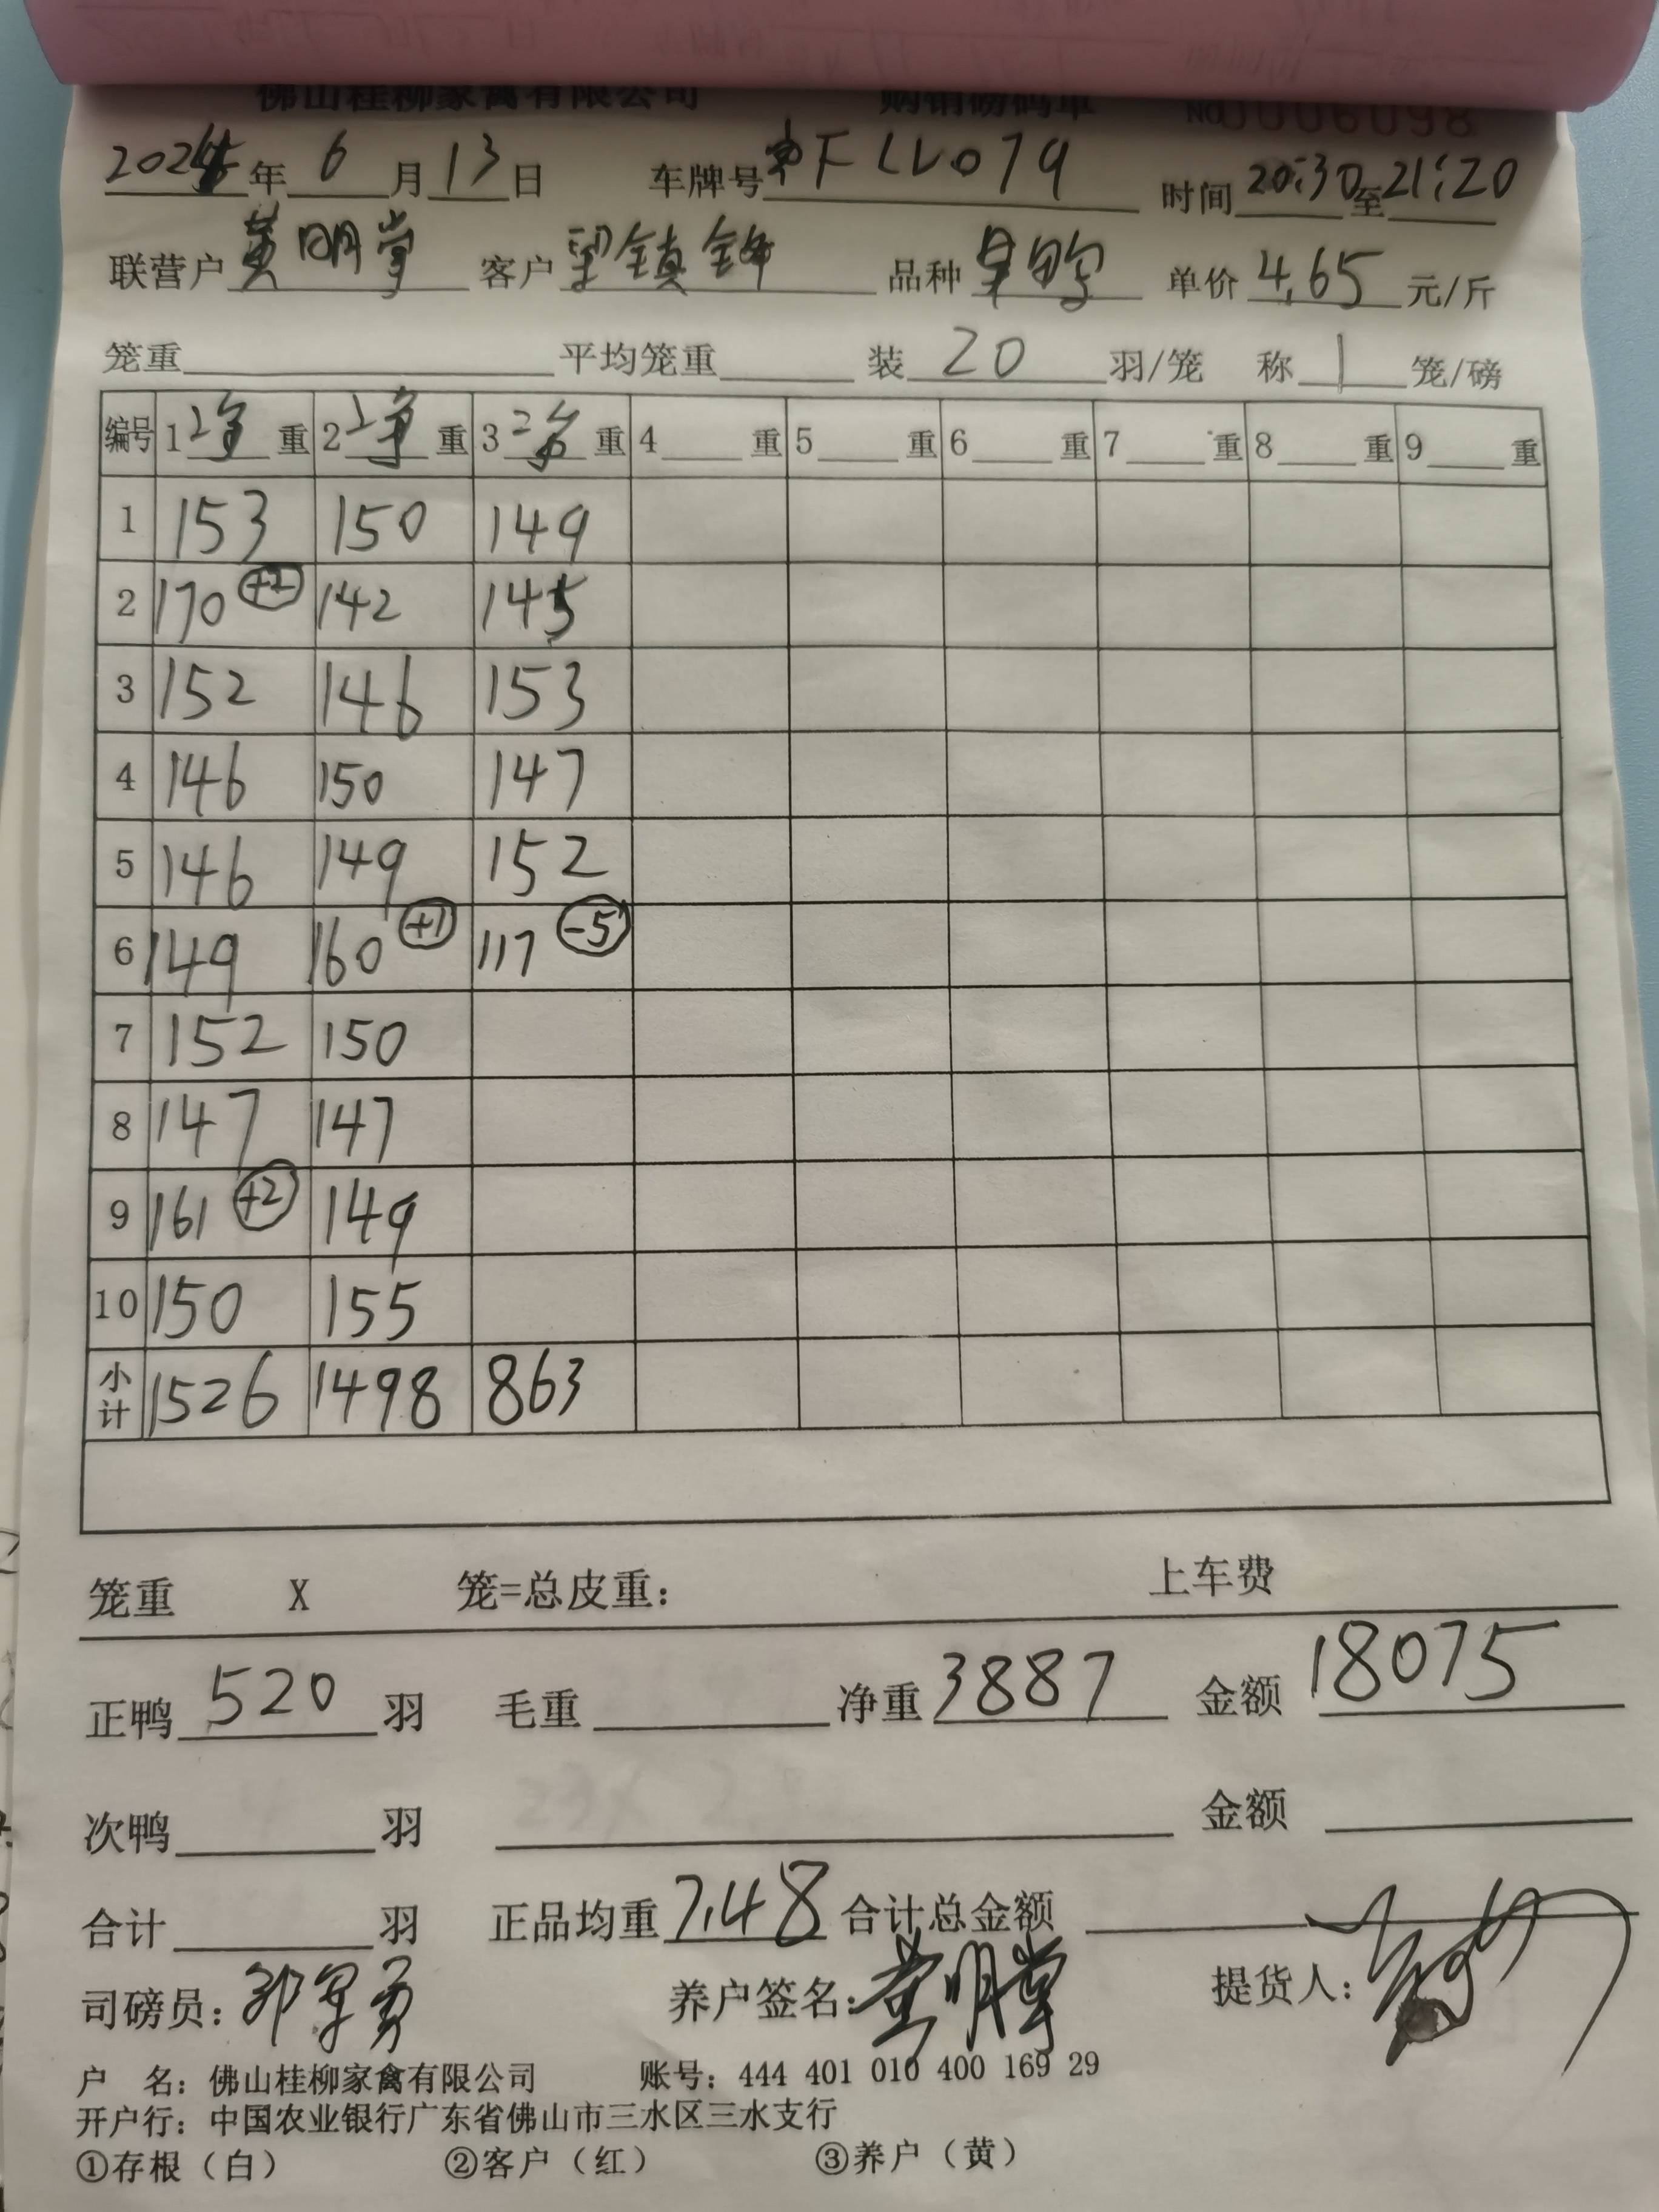 佛山桂柳家禽有限公司 购销磅码单 No 0006098
年 6 月 13 日 车牌号 FLV079 时间 20:30 至 21:20
联营户 黄明掌 客户 镇锋 品种 单价 4.65 元/斤
笼重 平均笼重 装 20 羽/笼 称 1 笼/磅
编号 1 净 重 2 净 重 3 净 重 4 重 5 重 6 重 7 重 8 重 9 重
1 153 150 149
2 170 +2 142 145
3 152 146 153
4 146 150 147
5 146 149 152
6 149 160 +1 117 -5
7 152 150
8 147 147
9 161 +2 149
10 150 155
小计 1526 1498 863
笼重 X 笼=总皮重： 上车费
正鸭 520 羽 毛重 净重 3887 金额 18075
次鸭 羽 金额
合计 羽 正品均重 7.48 合计总金额
司磅员： 养户签名：黄明掌 提货人：
户 名：佛山桂柳家禽有限公司 账号：444 401 010 400 169 29
开户行：中国农业银行广东省佛山市三水区三水支行
①存根（白） ②客户（红） ③养户（黄）